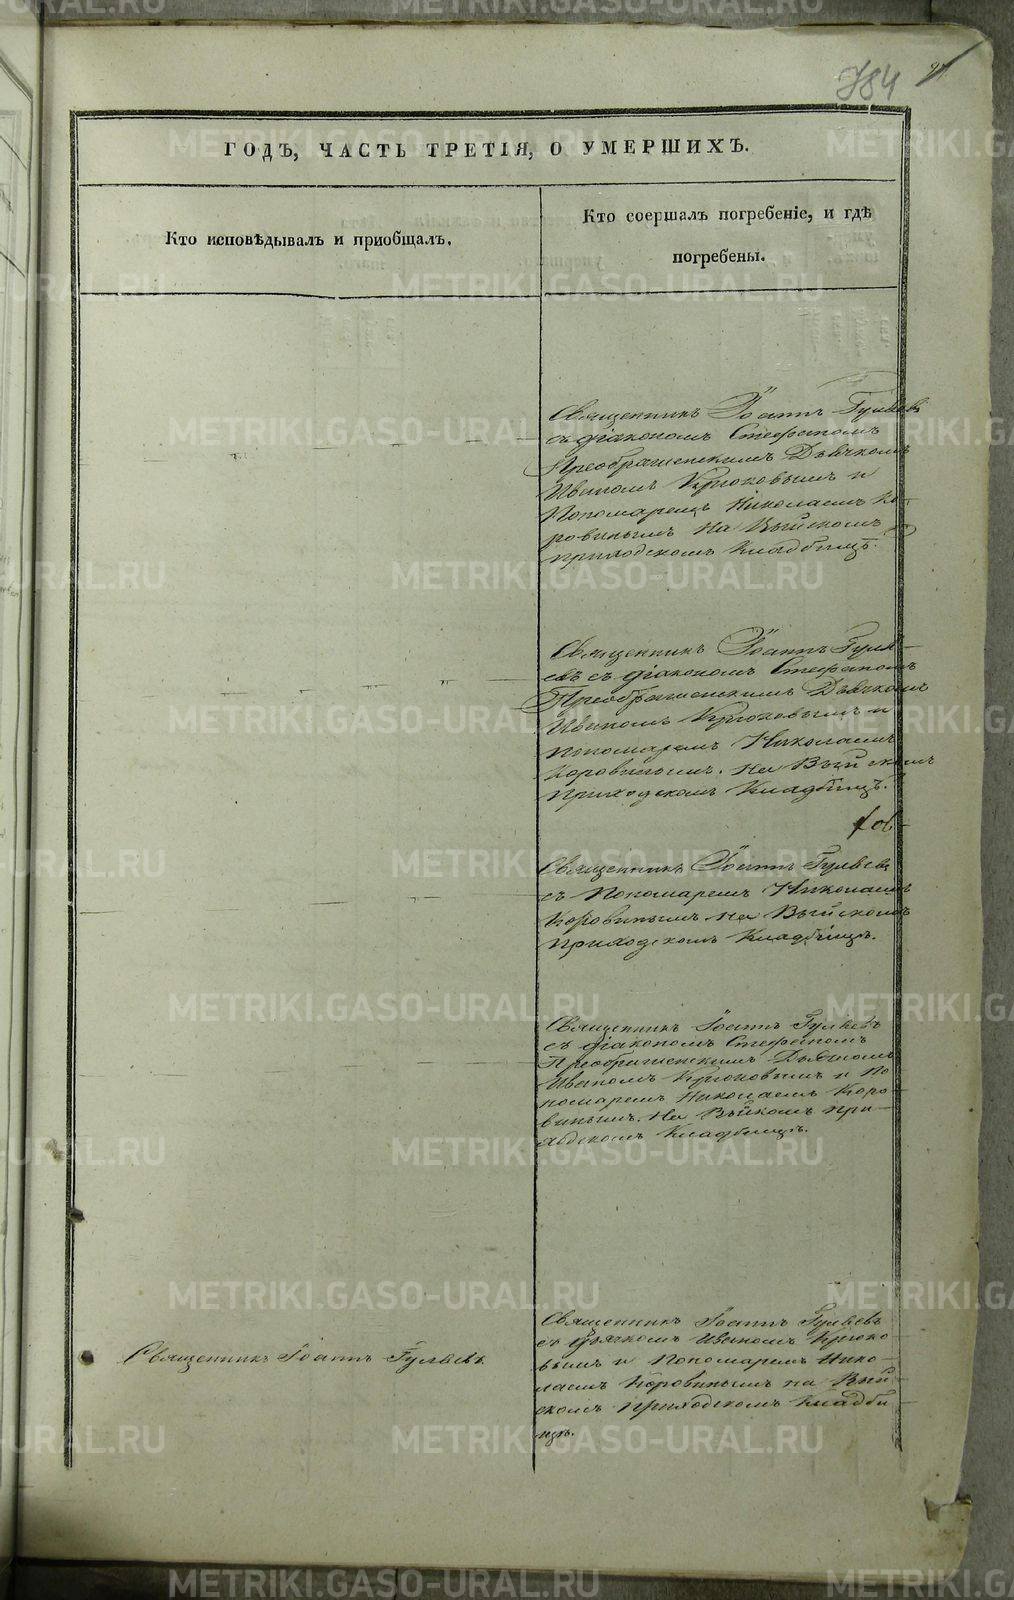 784
ГОДЪ, ЧАСТЬ ТРЕТІЯ, О УМЕРШИХЪ.
Кто исповѣдывалъ и пріобщалъ.
Кто соершалъ погребеніе, и гдѣ
погребены.
Священникъ Іоаннъ Гуляевъ
съ діакономъ Стефаномъ
Преображенскимъ Дьячкомъ
Иваномъ Крюковымъ и
Пономаремъ Николаемъ Ко-
ровинымъ на Выйскомъ
приходскомъ Кладбищѣ.
Священникъ Іоаннъ Гуля-
евъ съ діакономъ Стефаномъ
Преображенскимъ Дьячкомъ
Иваномъ Крюковымъ и
пономаремъ Николаемъ
Коровинымъ. На Выйскомъ
приходскомъ Кладбищѣ.
Священникъ Іоаннъ Гуляевъ
съ Пономаремъ Николаемъ
Коровинымъ на Выйскомъ
приходскомъ Кладбищѣ.
Священникъ Іоаннъ Гуляевъ
съ діакономъ Стефаномъ
Преображенскимъ Дьячкомъ
Иваномъ Крюковымъ и По
номаремъ Николаемъ Коро-
винымъ. На Выйкомъ при-
ходскомъ Кладбищѣ.
Священникъ Іоаннъ Гуляевъ
Священникъ Іоаннъ Гуляевъ
съ Дьячкомъ Иваномъ Крюко-
вымъ и Пономаремъ Нико-
лаемъ Коровинымъ на Вый-
скомъ приходскомъ Кладби
щѣ.
METRIKI.GASO-URAL.RU